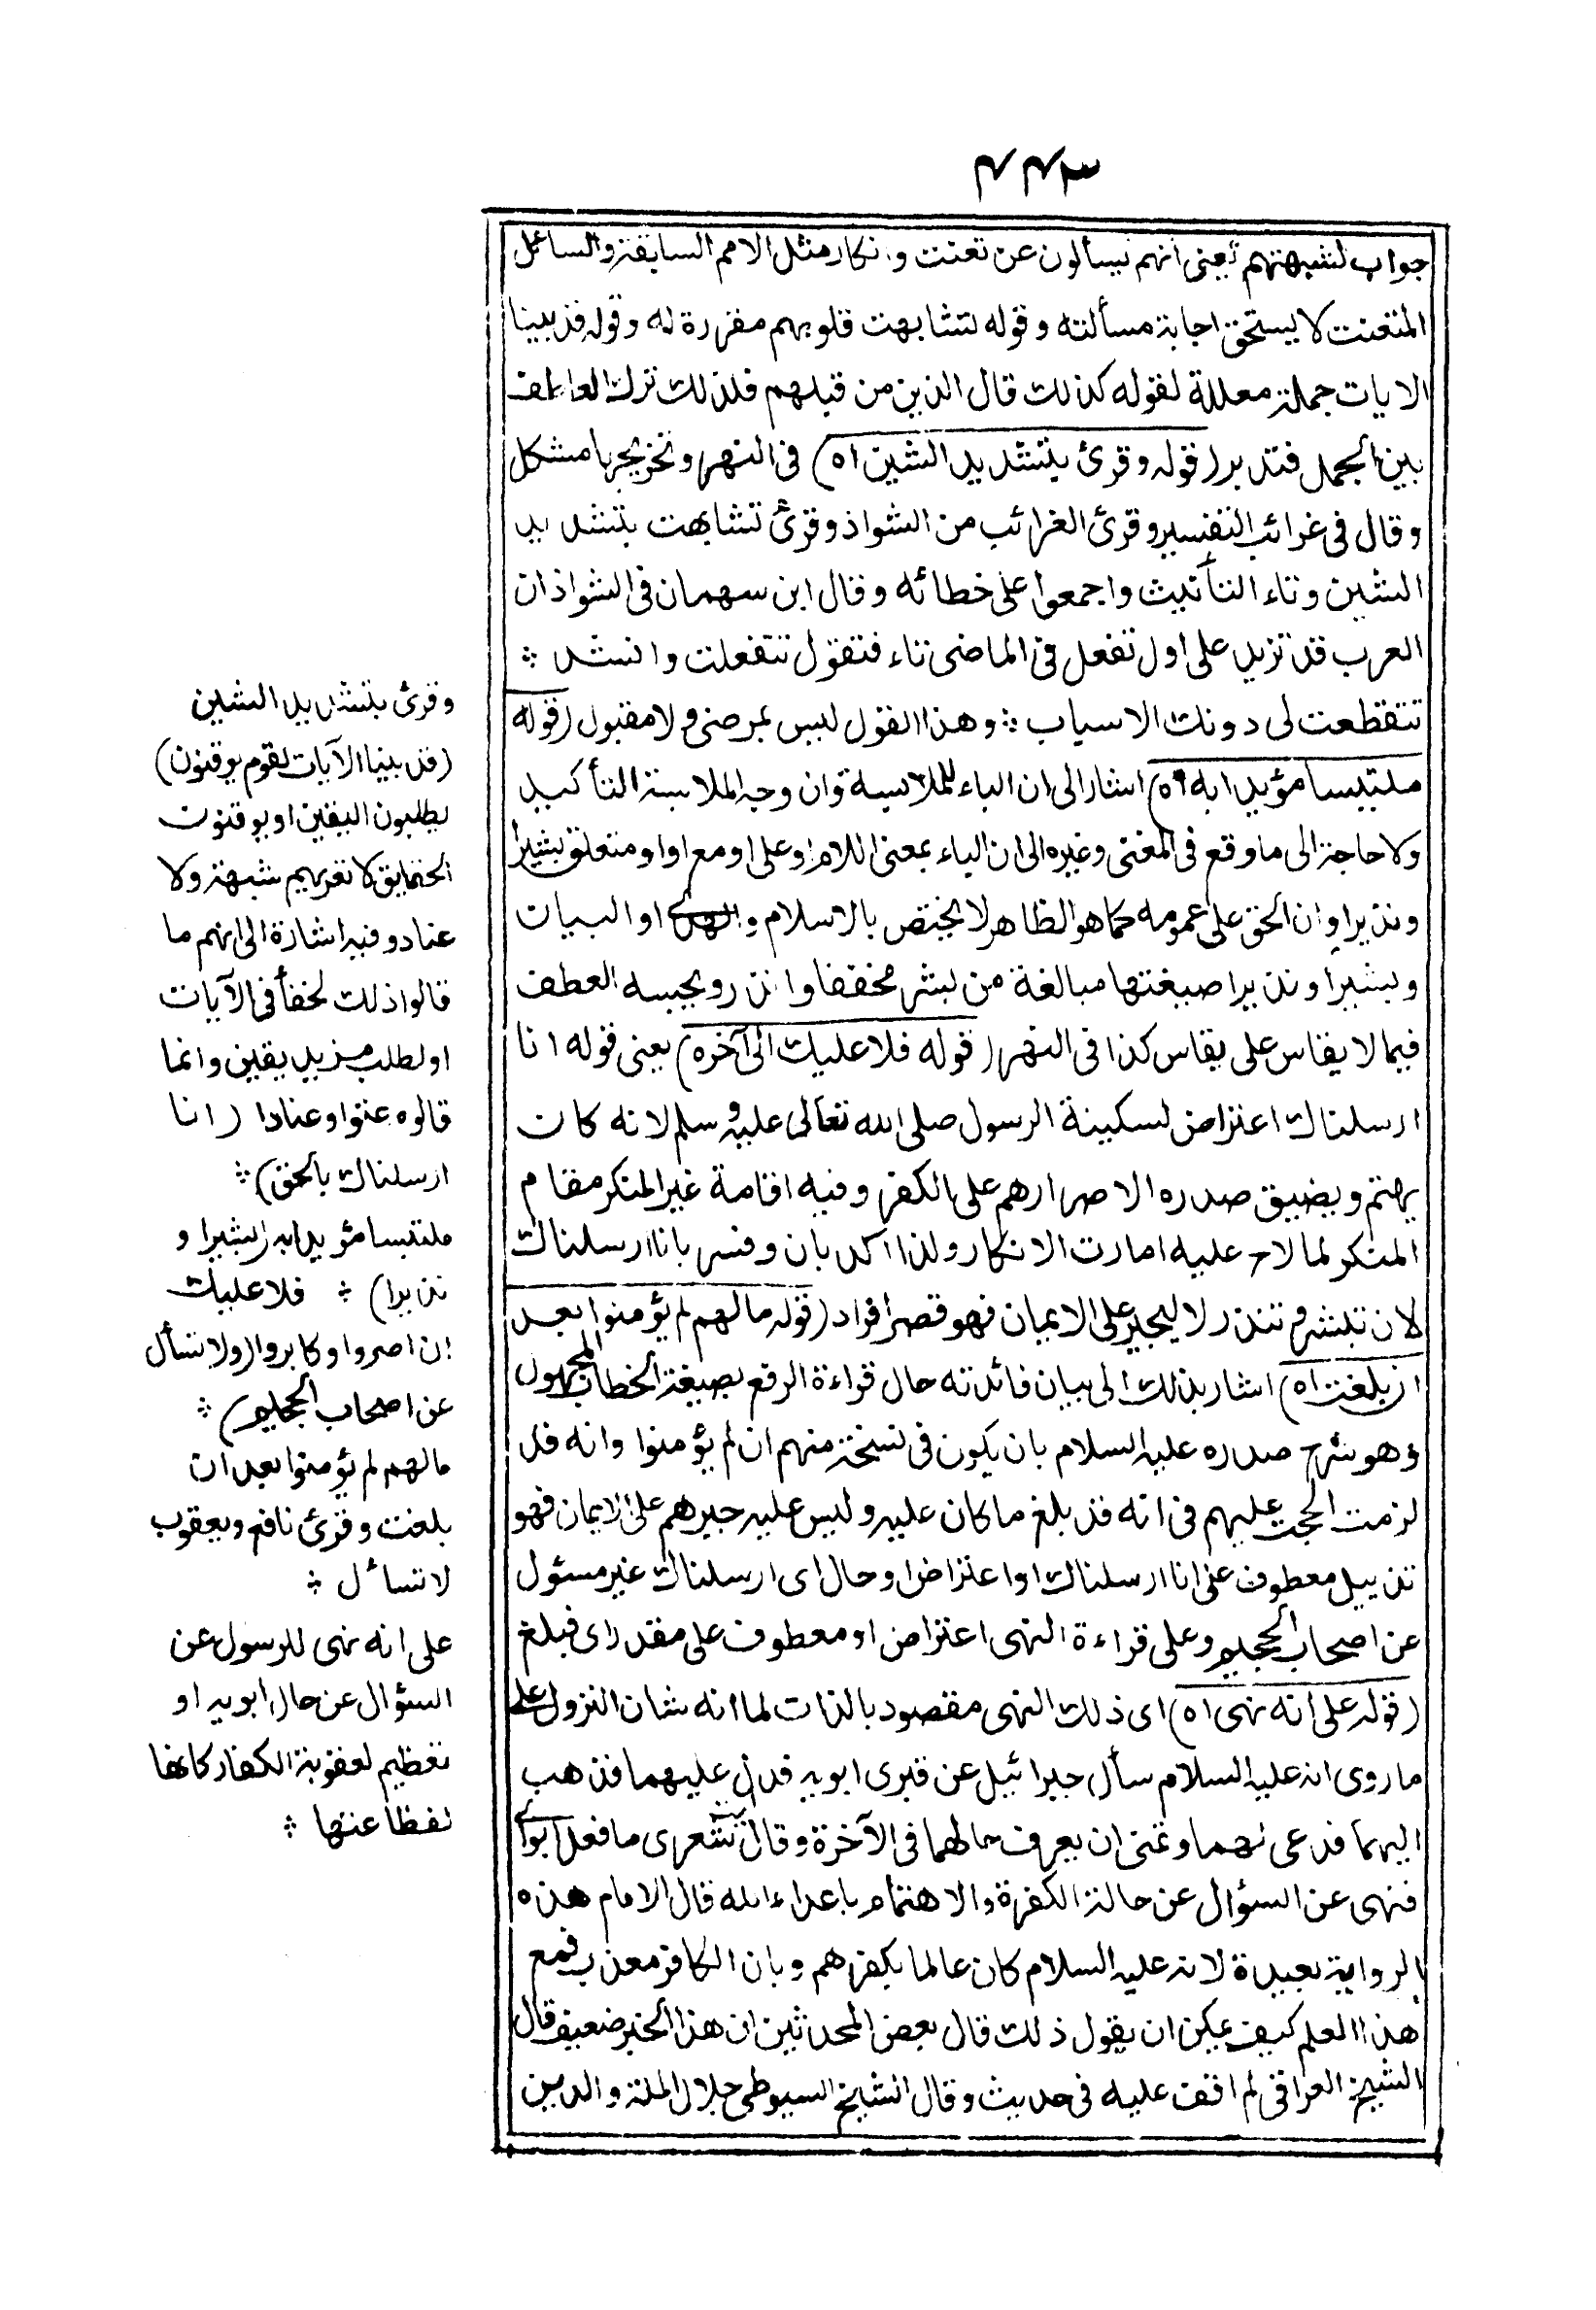 ٤٤٣
جواب لشبهتهم يعنى انهم يسألون عن تعنت وانكار مثل الامم السابقة والسائل
المتعنت لا يستحق اجابة مسألته وقوله تشابهت قلوبهم مقررة له وقوله قد بينا
الايات جملة معللة لقوله كذلك قال الذين من قبلهم فلذلك ترك العاطف
بين الجمل فتدبر (قوله وقرئ بتشديد الشين اه) فى النهر وتخريجها مشكل
وقال فى غرائب التفسير وقرئ الغرائب من الشواذ وقرئ تشابهت بتشديد
الشين وتاء التأنيث واجمعوا على خطائه وقال ابن سهمان فى الشواذ ان
العرب قد تزيد على اول تفعل فى الماضى تاء فتقول تتفعلت وانشد ؞
تتقطعت لى دونك الاسباب ؞ وهذا القول ليس بمرضى ولا مقبول (قوله
ملتبسا مؤيدا به اه) اشار الى ان الباء للملابسة وان وجه الملابسة التأكيد
ولا حاجة الى ما وقع فى المغنى وغيره الى ان الباء بمعنى اللام او على او مع او او متعلق بشيرا
ونذيرا وان الحق على عمومه كما هو الظاهر لا يختص بالاسلام والهدى او البيات
وبشيرا ونذيرا صيغتها مبالغة من بشر مخففا وانذر ويجيسه العطف
فيما لا يقاس على يقاس كذا فى النهر (قوله فلا عليك الى آخره) يعنى قوله انا
ارسلناك اعتراض لسكينة الرسول صلى الله تعالى عليه وسلم لانه كان
يهتم ويضيق صدره الاصرارهم على الكفر وفيه اقامة غير المنكر مقام
المنكر لما لاح عليه امارت الانكار ولذا اكد بان وفسر بانا ارسلناك
لان تبشر وتنذر لا ليجبر على الايمان فهو قصر افراد (قوله ما لهم لم يؤمنوا بعد
ان بلغت اه) اشار بذلك الى بيان فائدته حال قراءة الرفع بصيغة الخطاب المجهول
وهو شرح صدره عليه السلام بان يكون فى نسخة منهم ان لم يؤمنوا وانه قد
لزمت الحجت عليهم فى انه قد بلغ ما كان عليه وليس عليه جبرهم على الايمان فهو
تذييل معطوف على انا ارسلناك او اعتراض او حال اى ارسلناك غير مسئول
عن اصحاب الجحيم وعلى قراءة النهى اعتراض او معطوف على مقدر اى فبلغ
(قوله على انه نهى اه) اى ذلك النهى مقصود بالذات لما انه شان النزول على
ما روى انه عليه السلام سأل جبرائيل عن قبرى ابويه فدل عليهما فذهب
اليهما فدعى لهما وتمنى ان يعرف حالهما فى الآخرة وقال شعرى ما فعل ابواى
فنهى عن السؤال عن حالة الكفرة والاهتمام باعداء الله قال الامام هذه
الرواية بعيدة لانه عليه السلام كان عالما بكفرهم وبان الكافر معذب فمع
هذا العلم كيف يمكن ان يقول ذلك قال بعض المحدثين ان هذا الخبر ضعيف قال
الشيخ العراقى لم اقف عليه فى حديث وقال الشيخ السيوطى جلال الملة والدين
وقرئ بتشديد الشين
(قد بينا الآيات لقوم يوقنون)
يطلبون اليقين او يوقنون
الحقايق لا تعريهم شبهة ولا
عناد وفيه اشارة الى انهم ما
قالوا ذلك لخفأ فى الآيات
او لطلب مزيد يقين وانما
قالوه عتوا وعنادا (انا
ارسلناك بالحق) ؞
ملتبسا مؤيدا به (بشيرا و
نذيرا) ؞ فلا عليك
ان اصروا وكابروا (ولا تسأل
عن اصحاب الجحيم) ؞
ما لهم لم يؤمنوا بعد ان
بلغت وقرئ نافع ويعقوب
لا تسأل ؞
على انه نهى للرسول عن
السؤال عن حال ابويه او
تعظيم لعقوبة الكفار كانها
لفظاعتها ؞